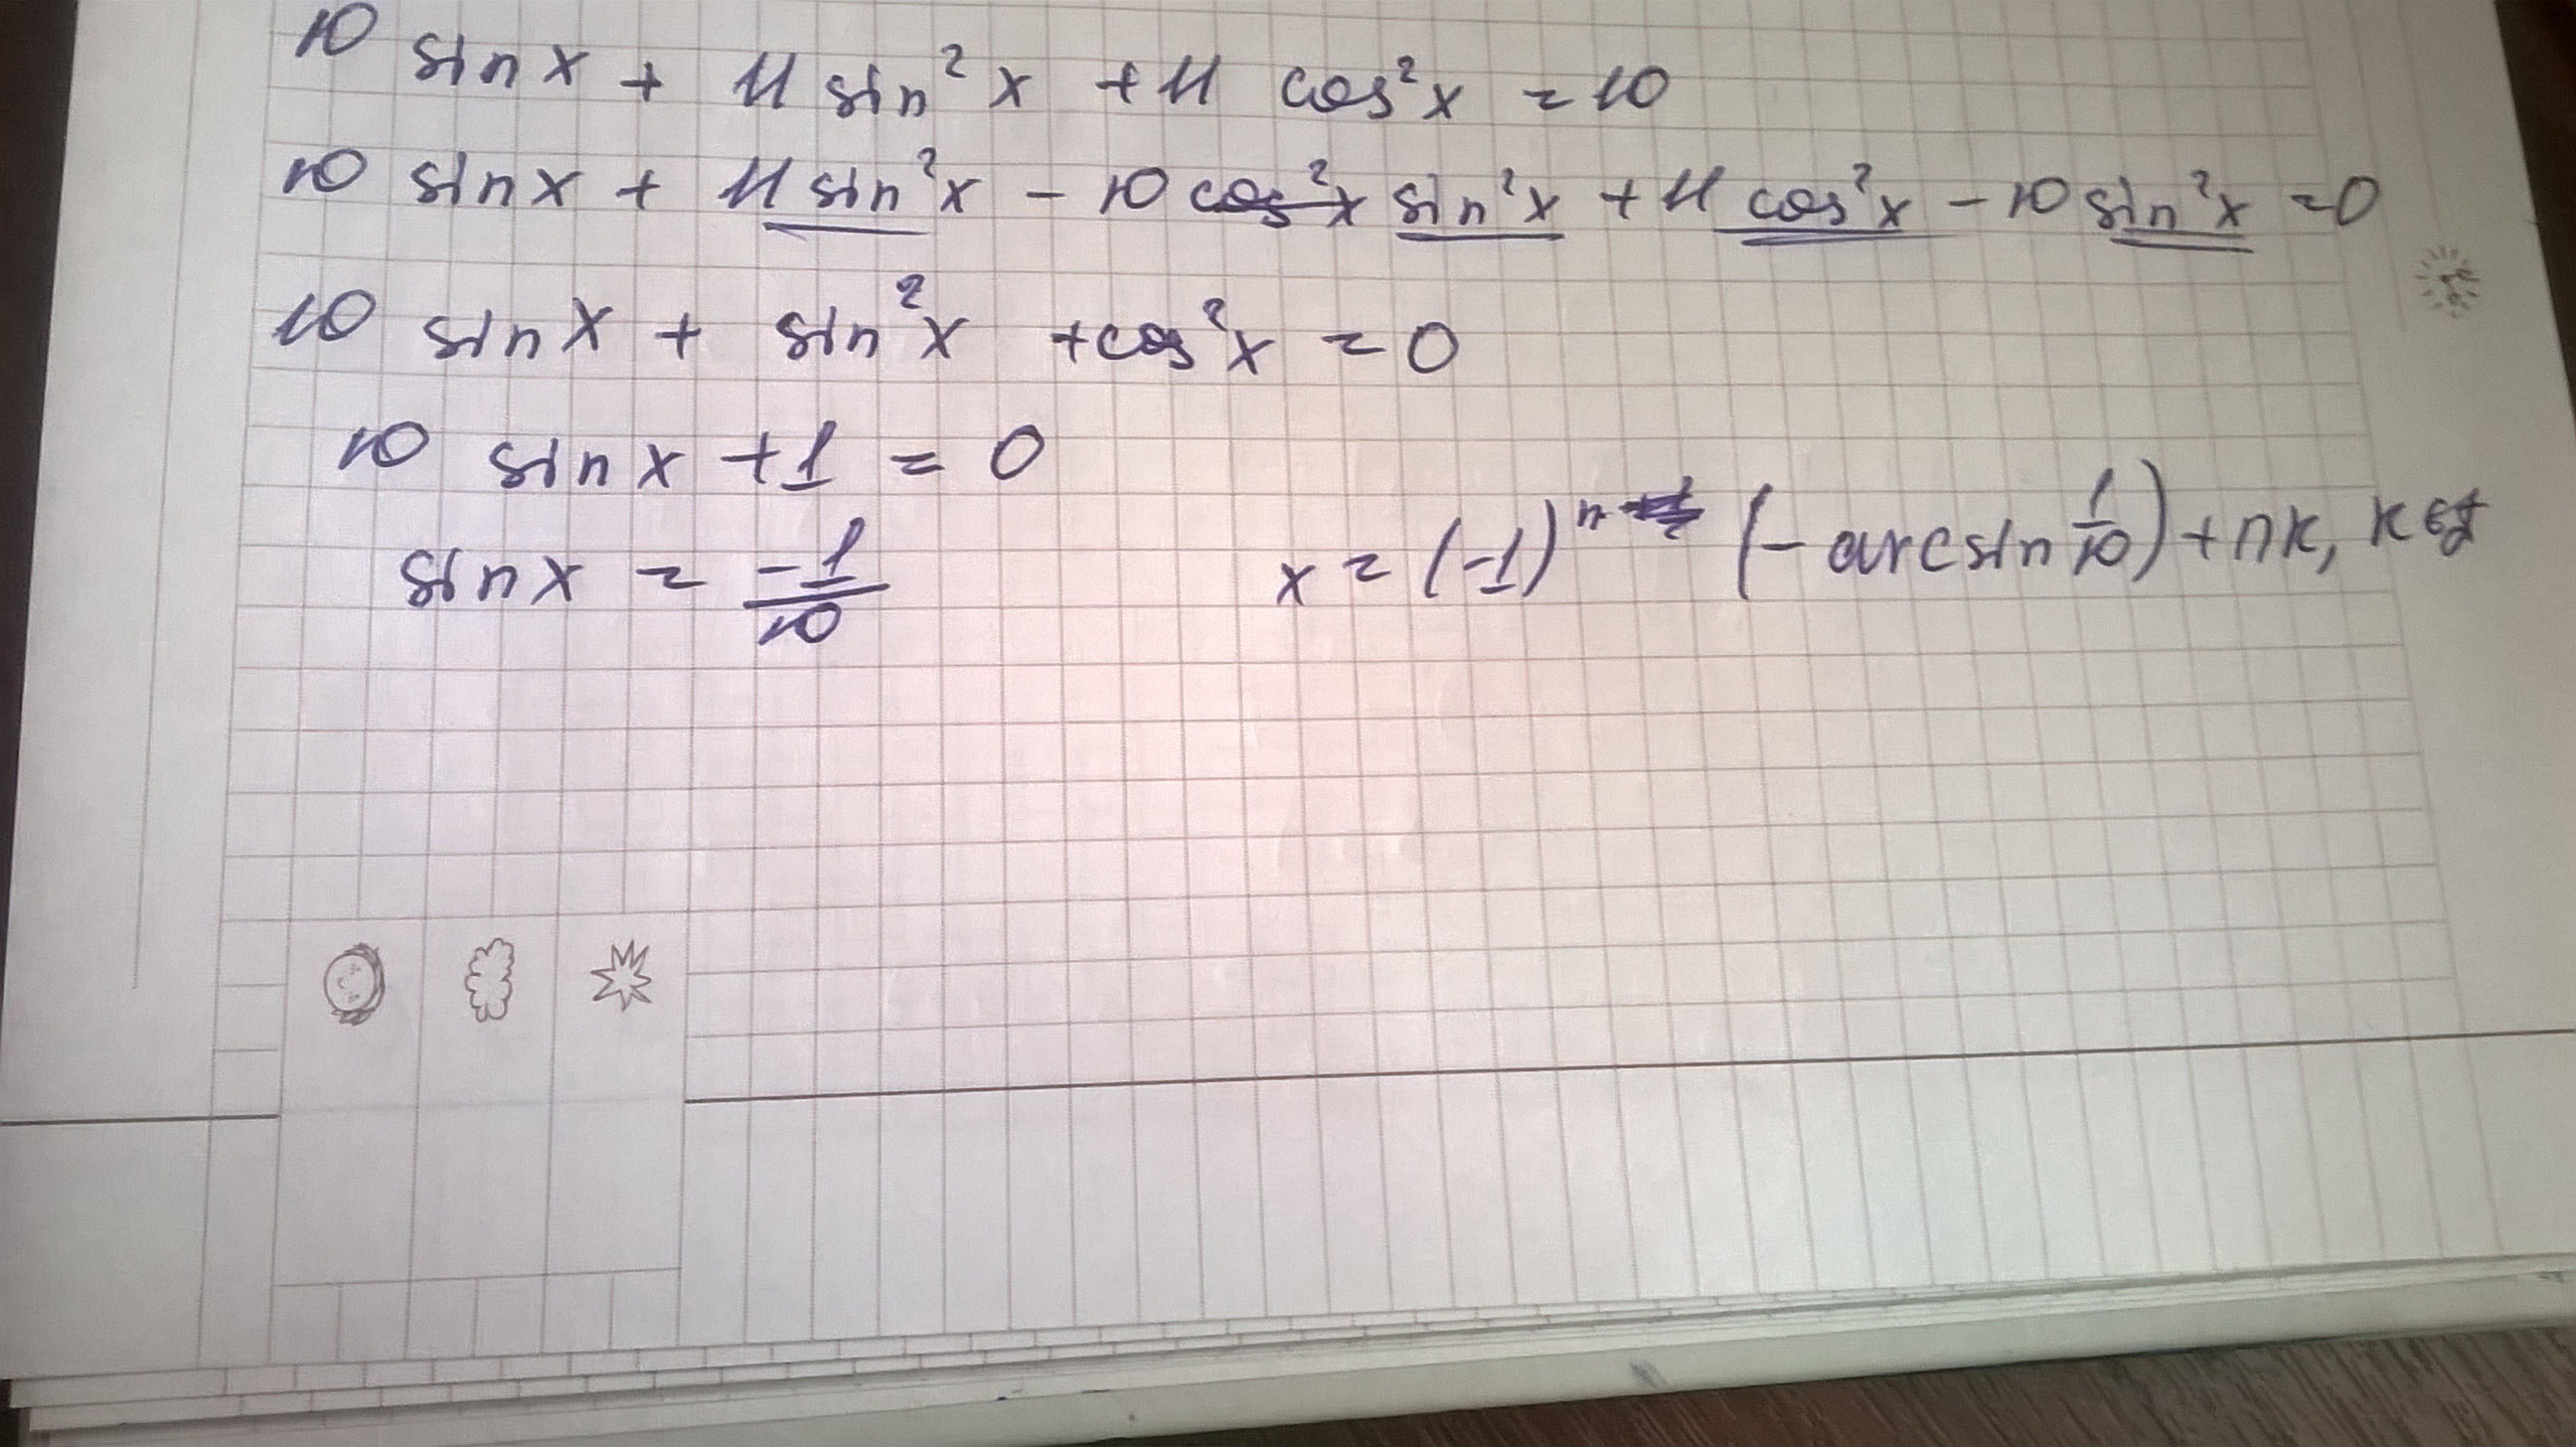 10 sin x + 11 sin²x + 11 cos²x = 10
10 sin x + 11 sin²x - 10 ~~cos²x~~ sin²x + 11 cos²x - 10 sin²x = 0
10 sin x + sin²x + cos²x = 0
10 sin x + 1 = 0
sin x = -1/10
x = (-1)ⁿ (-arcsin 1/10) + πk, k∈Z